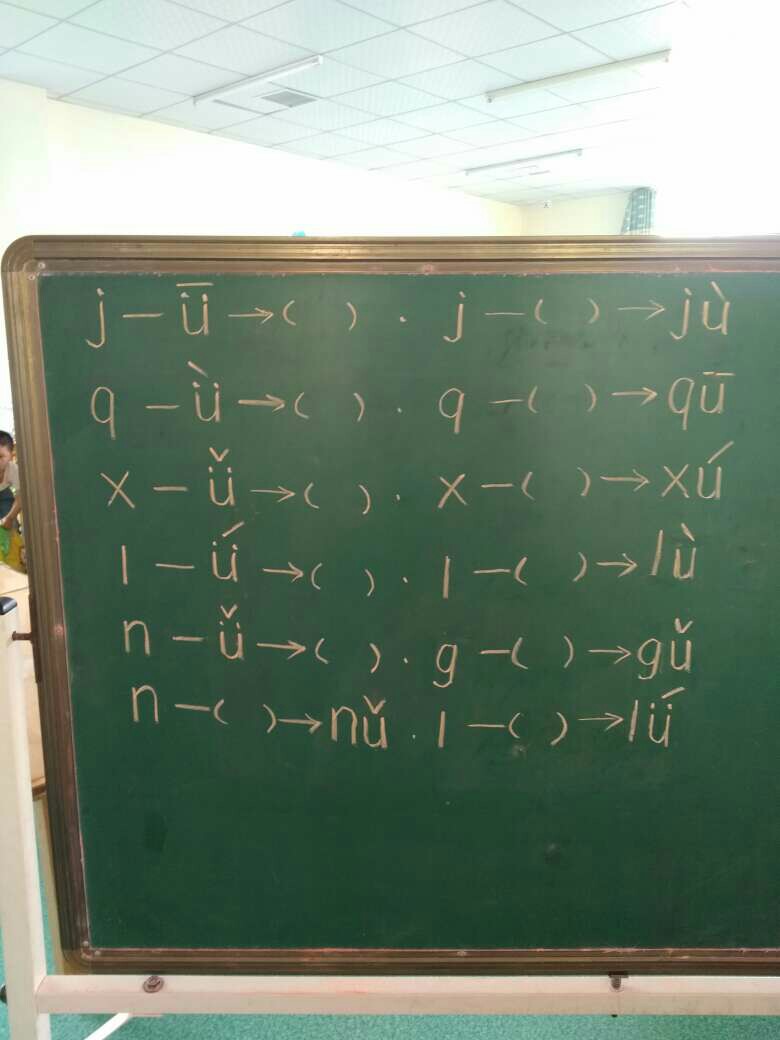 j — ǖ → ( ) . j — ( ) → jù
q — ǜ → ( ) . q — ( ) → qū
x — ǚ → ( ) . x — ( ) → xú
l — ǘ → ( ) . l — ( ) → lù
n — ǚ → ( ) . g — ( ) → gǔ
n — ( ) → nǔ . l — ( ) → lǘ